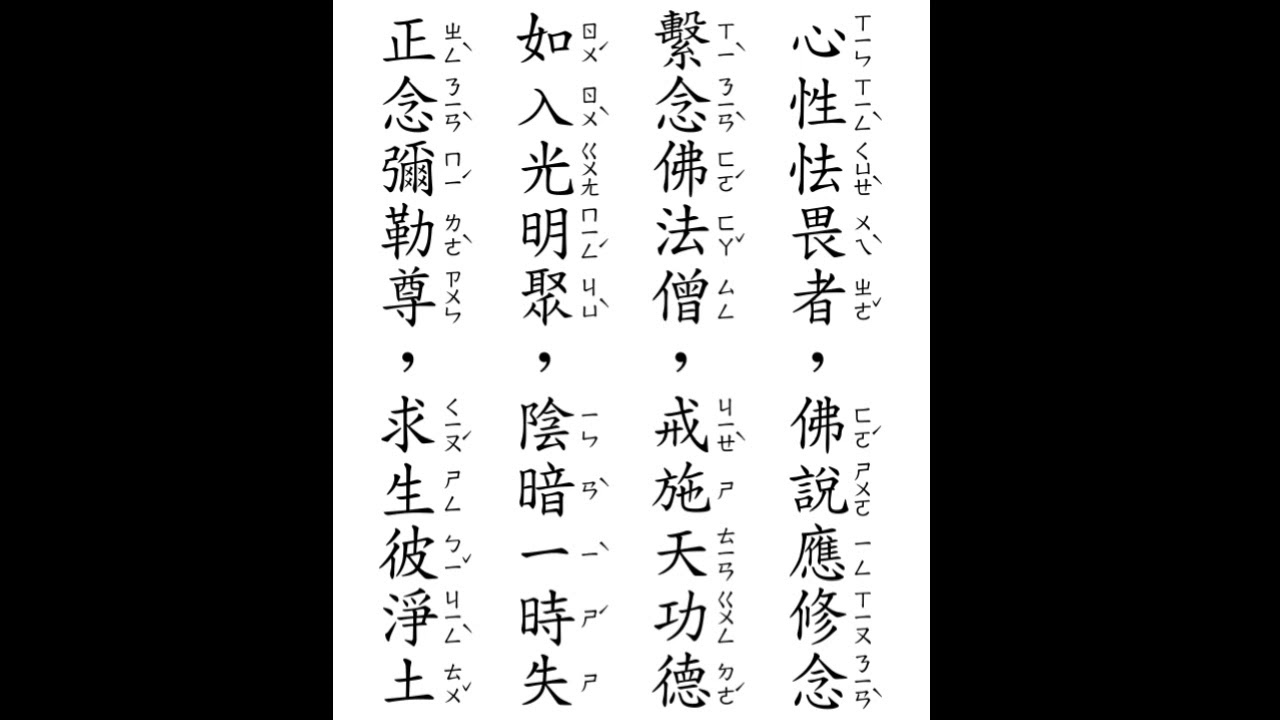 心ㄒㄧㄣ性ㄒㄧㄥˋ怯ㄑㄩㄝˋ畏ㄨㄟˋ者ㄓㄜˇ，佛ㄈㄛˊ說ㄕㄨㄛ應ㄧㄥ修ㄒㄧㄡ念ㄋㄧㄢˋ
繫ㄒㄧˋ念ㄋㄧㄢˋ佛ㄈㄛˊ法ㄈㄚˇ僧ㄙㄥ，戒ㄐㄧㄝˋ施ㄕ天ㄊㄧㄢ功ㄍㄨㄥ德ㄉㄜˊ
如ㄖㄨˊ入ㄖㄨˋ光ㄍㄨㄤ明ㄇㄧㄥˊ聚ㄐㄩˋ，陰ㄧㄣ暗ㄢˋ一ㄧˋ時ㄕˊ失ㄕ
正ㄓㄥˋ念ㄋㄧㄢˋ彌ㄇㄧˊ勒ㄌㄜˋ尊ㄗㄨㄣ，求ㄑㄧㄡˊ生ㄕㄥ彼ㄅㄧˇ淨ㄐㄧㄥˋ土ㄊㄨˇ